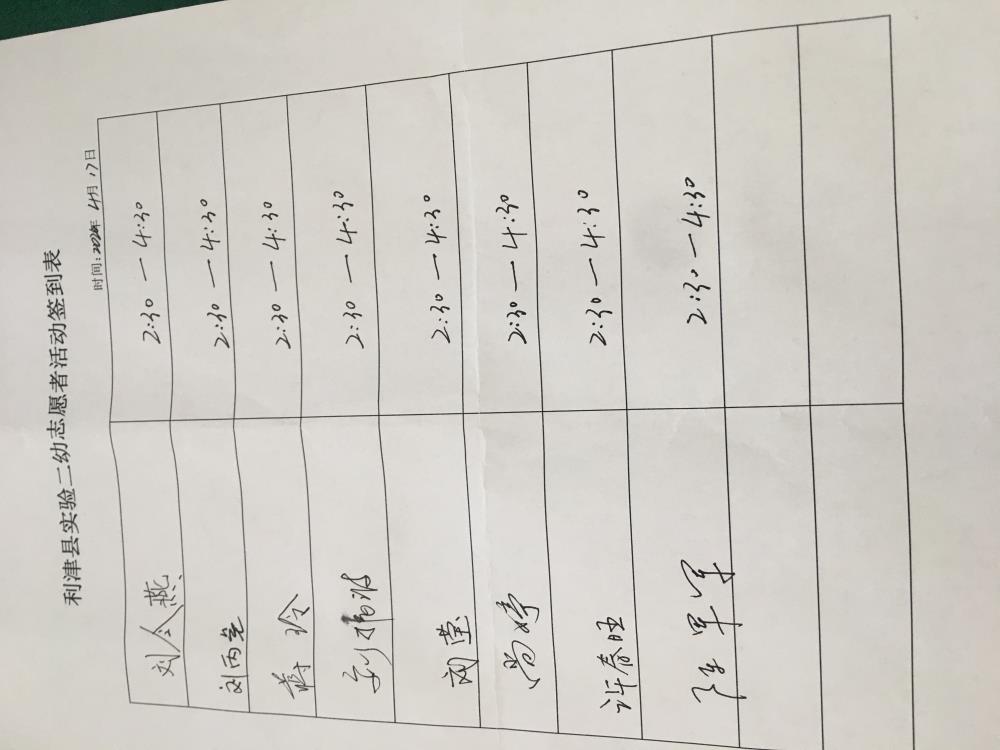 利津县实验二幼志愿者活动签到表
时间:2020年 4月 17日
刘令燕 2:30 — 4:30
刘丙芝 2:30 — 4:30
蒋玲 2:30 — 4:30
2:30 — 4:30
刘莹 2:30 — 4:30
尚婷 2:30 — 4:30
许春旺 2:30 — 4:30
陈军军 2:30 — 4:30